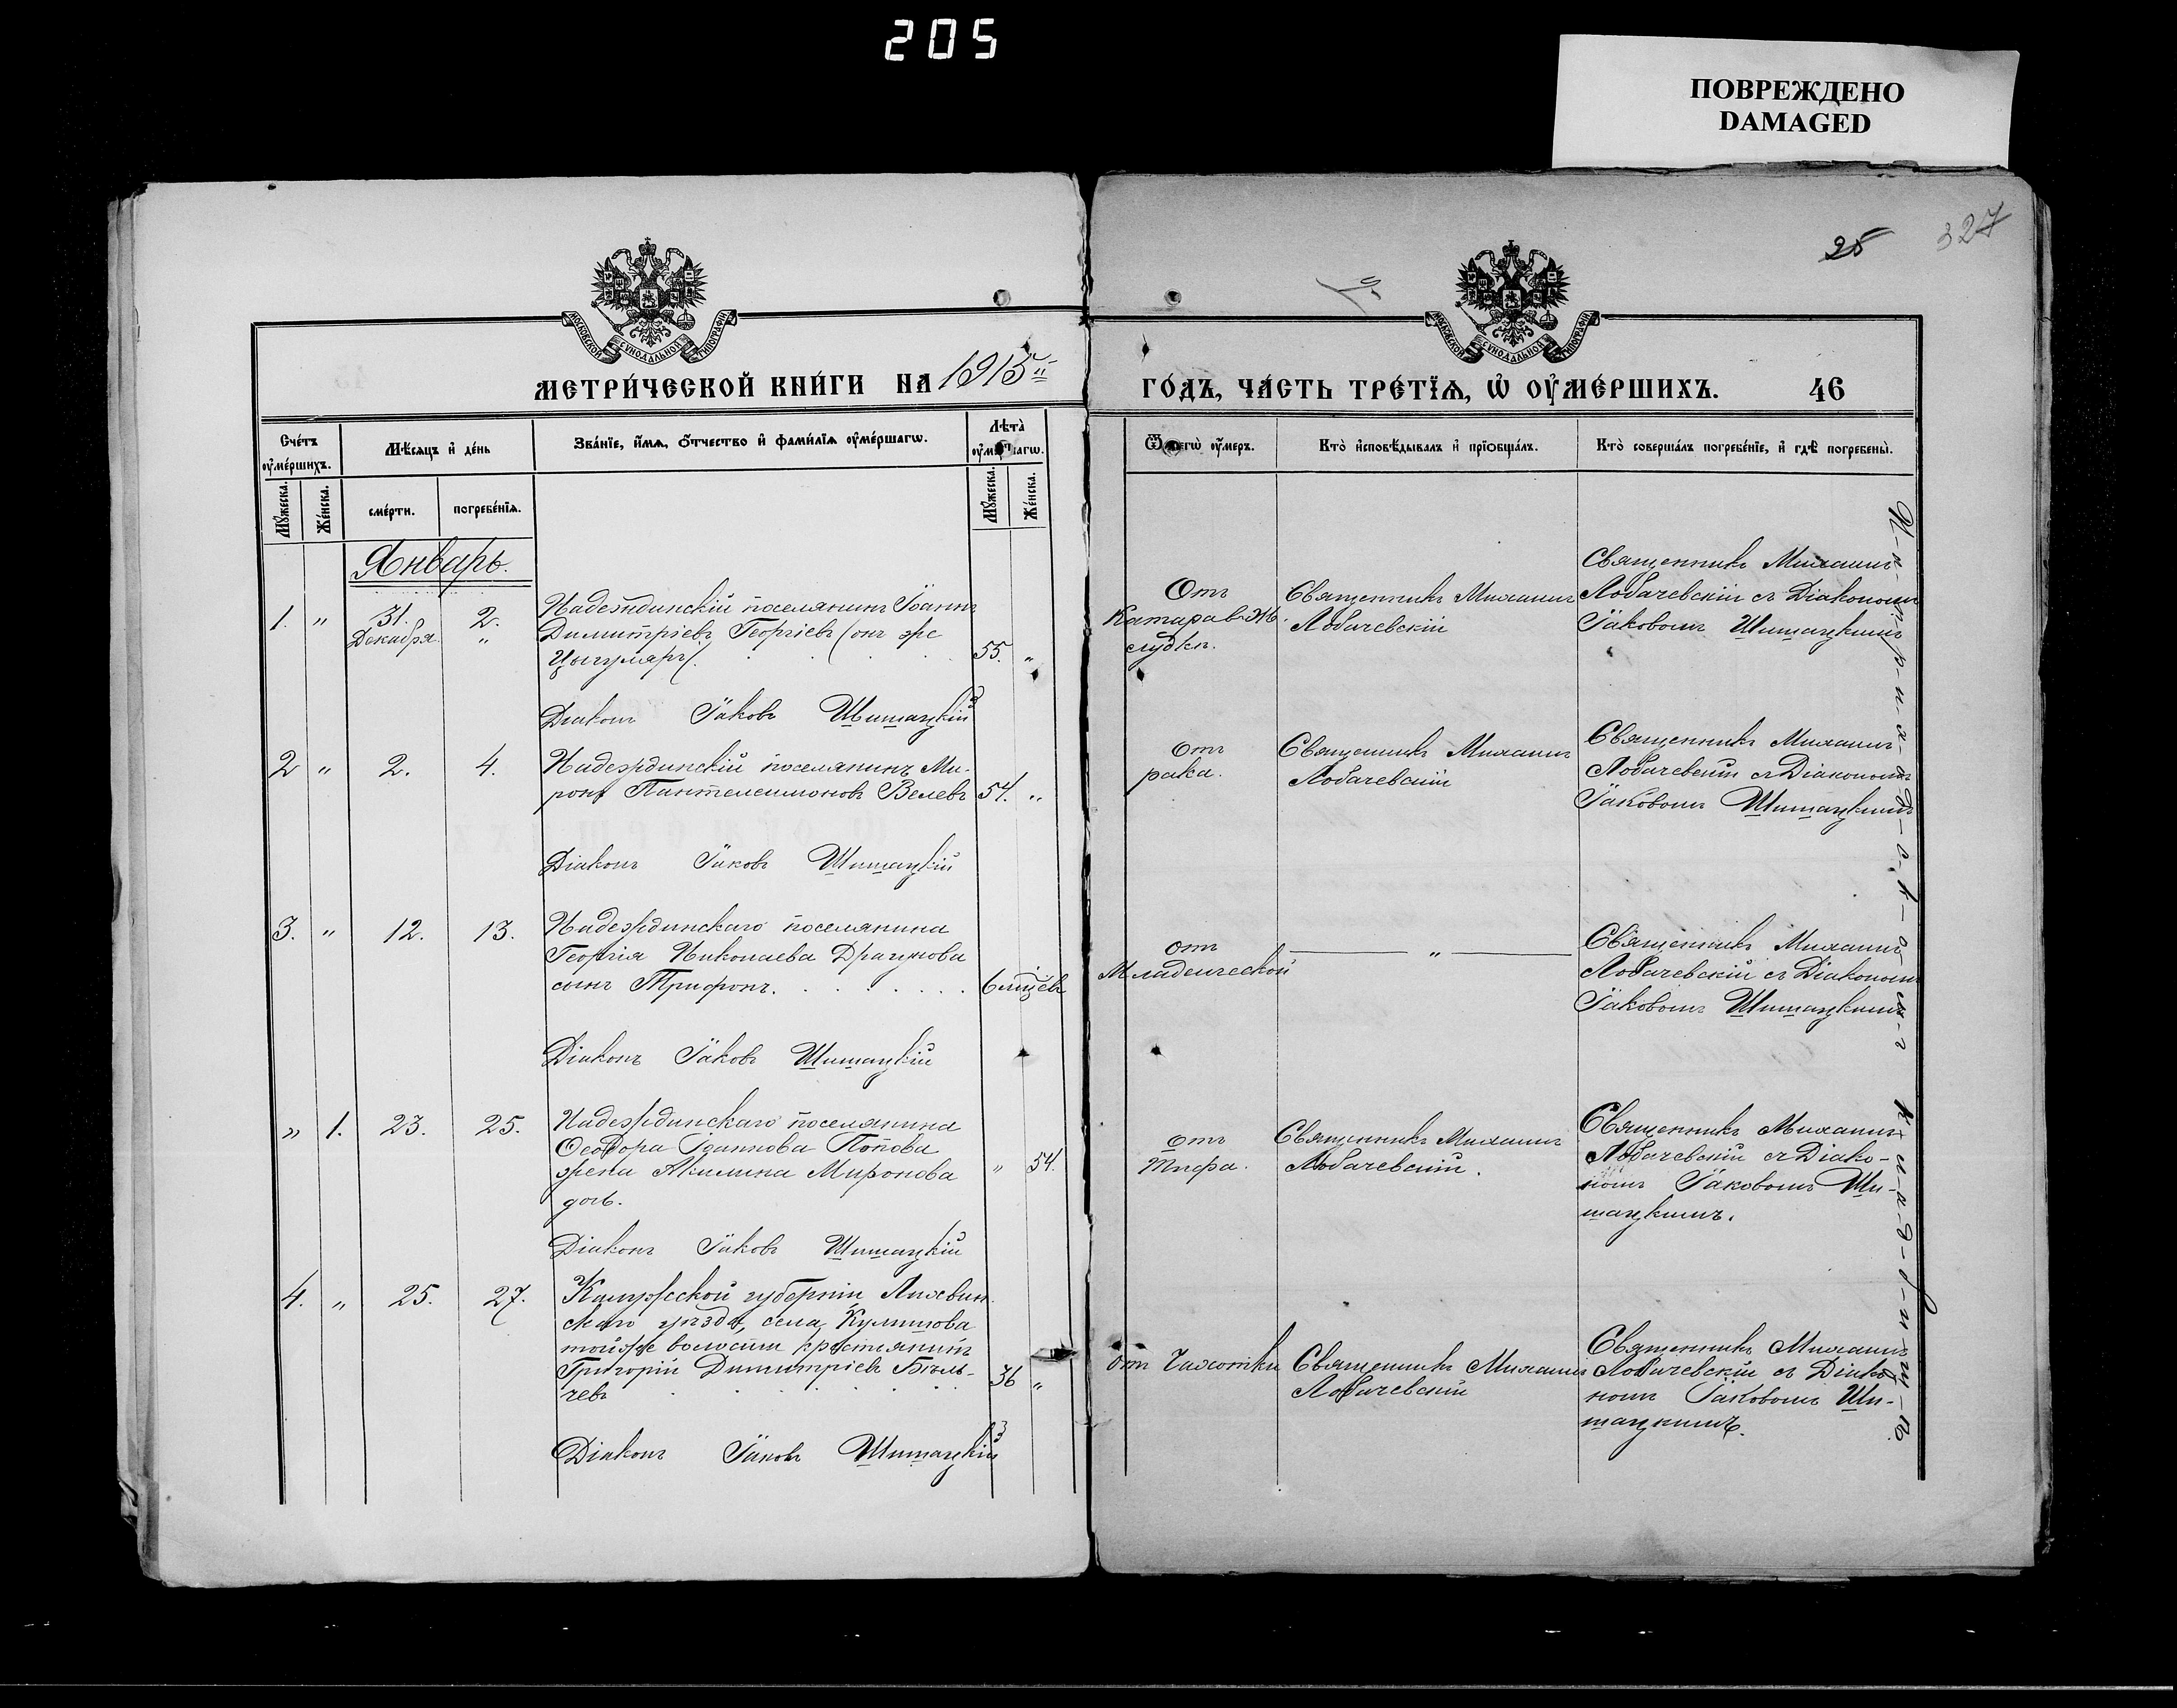 205
ПОВРЕЖДЕНО
DAMAGED
25
327
МОСКОВСКОЙ СѴНОДАЛЬНОЙ ТИПОГРАФІИ
МОСКОВСКОЙ СѴНОДАЛЬНОЙ ТИПОГРАФІИ
МЕТРИ́ЧЕСКОЙ КНИ́ГИ НА 1915
ГО́ДЪ, ЧА́СТЬ ТРЕ́ТЇѦ, Ѡ҆ ОУ҆МЕ́РШИХЪ. 46
Сче́тъ оу҆ме́ршихъ.
Мѣ́сѧцъ и҆ де́нь
Зва́нїе, и҆́мѧ, ѻ҆́тчество и҆ фами́лїѧ оу҆ме́ршагѡ.
Лѣ̀та̀
Ѿ чегѡ̀ оу҆́меръ.
Кто̀ и҆сповѣ́дывалъ и҆ прїѻбща́лъ.
Кто̀ соверша́лъ погребе́нїе, и҆ гдѣ̀ погребены̀.
Мꙋ́жеска.
Же́нска.
сме́рти.
погребе́нїѧ.
Мꙋ́жеска.
Же́нска.
Январь.
1. " 31. Декабря 2. "
Надеждинскій поселянинъ Іоаннъ
Димитріевъ Георгіевъ (онъ же
Цынгуляръ). 55. "
Діаконъ Іаковъ Шишацкій
Отъ
слудка.
Священникъ Михаилъ
Лобачевскій
Священникъ Михаилъ
Лобачевскій съ Діакономъ
Іаковомъ Шишацкимъ
2 " 2. 4.
Надеждинскій поселянинъ Ми-
ронъ Пантелеимоновъ Велевъ 54. "
Діаконъ Іаковъ Шишацкій
отъ
рака.
Священникъ Михаилъ
Лобачевскій
Священникъ Михаилъ
Лобачевскій съ Діакономъ
Іаковомъ Шишацкимъ
3. " 12. 13.
Надеждинскаго поселянина
Георгія Николаева Драгунова
сынъ Трифонъ. 6 мцевъ
Діаконъ Іаковъ Шишацкій
отъ
Младенческой
"
Священникъ Михаилъ
Лобачевскій съ Діакономъ
Іаковомъ Шишацкимъ
" 1. 23. 25.
Надеждинскаго поселянина
Ѳеодора Іоаннова Попова
жена Акилина Миронова
дочь. " 54.
Діаконъ Іаковъ Шишацкій
отъ
тифа.
Священникъ Михаилъ
Лобачевскій.
Священникъ Михаилъ
Лобачевскій съ Діако-
номъ Іаковомъ Ши-
шацкимъ.
4. " 25. 27.
Калужской губерніи Лихвин-
скаго уѣзда, села Кулишова
той же волости крестьянинъ
Григорій Димитріевъ Бѣль-
чевъ 36 "
Діаконъ Іаковъ Шишацкій
отъ Чахотки
Священникъ Михаилъ
Лобачевскій
Священникъ Михаилъ
Лобачевскій съ Діако-
номъ Іаковомъ Ши-
шацкимъ.
На приходскомъ кладбищѣ.